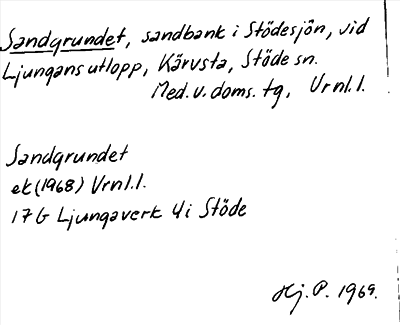 Sandgrundet, sandbank i Stödesjön, vid
Ljungans utlopp, Kärvsta, Stöde sn.
Med. v. doms. tg, Vrnl. l.
Sandgrundet
ek (1968) Vrnl. l.
17G Ljungaverk 4i Stöde
Hj. P. 1969.